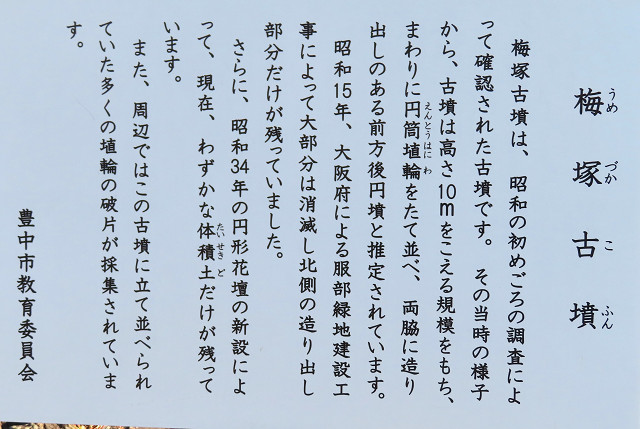 梅塚古墳
うめづかこふん
梅塚古墳は、昭和の初めごろの調査によ
って確認された古墳です。その当時の様子
から、古墳は高さ10mをこえる規模をもち、
まわりに円筒埴輪をたて並べ、両脇に造り
えんとうはにわ
出しのある前方後円墳と推定されています。
昭和15年、大阪府による服部緑地建設工
事によって大部分は消滅し北側の造り出し
部分だけが残っていました。
さらに、昭和34年の円形花壇の新設によ
って、現在、わずかな体積土だけが残って
たいせきど
います。
また、周辺ではこの古墳に立て並べられ
ていた多くの埴輪の破片が採集されていま
す。
豊中市教育委員会